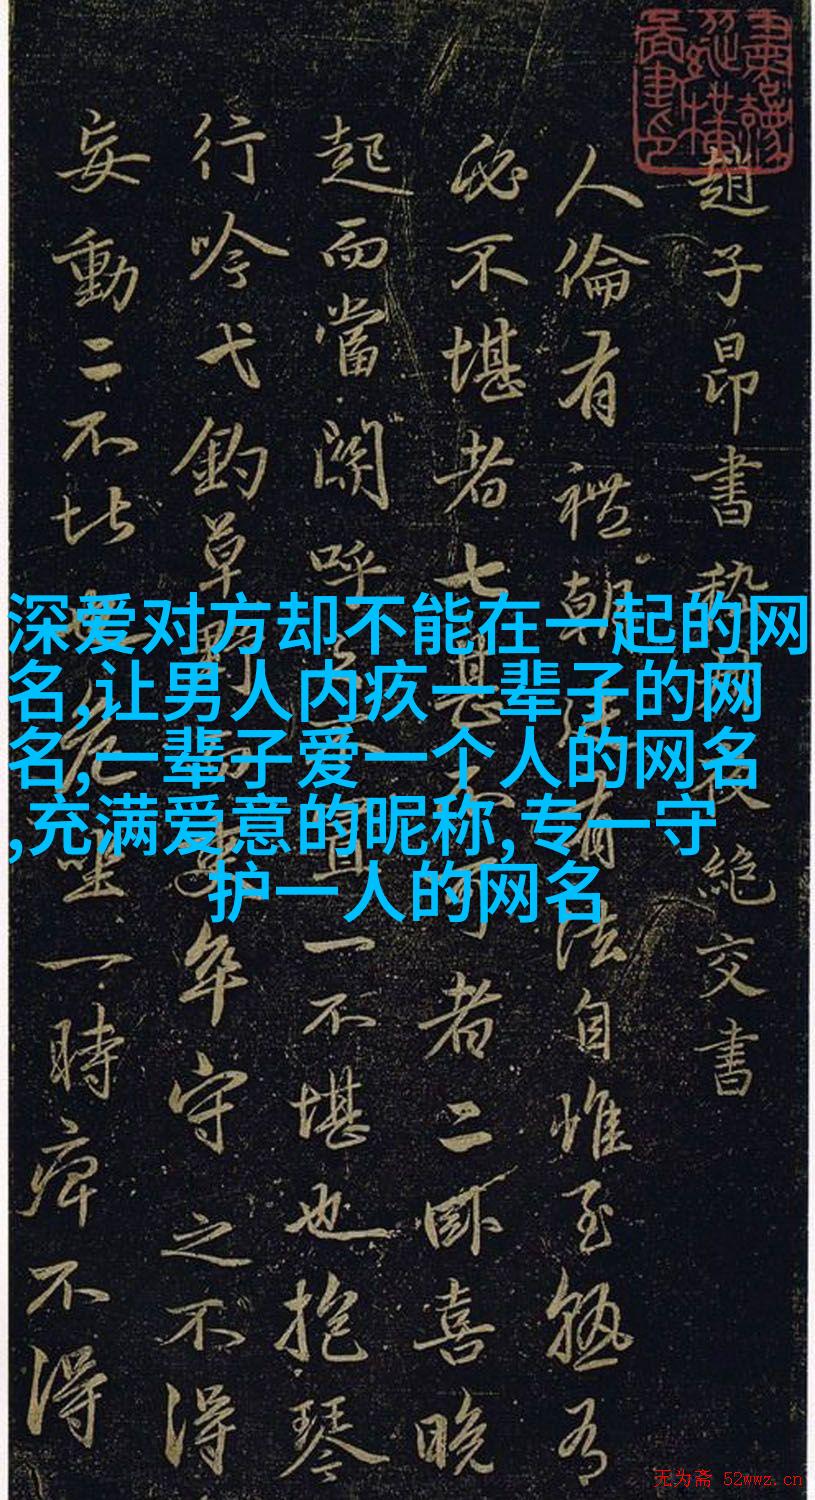 趙子昂書嵇叔夜絕交書
人倫有禮朝廷有法自惟至熟有
必不堪者七甚不可者二卧喜晚
起而當關呼之不置一不堪也抱琴
行吟弋釣草野而吏卒守之不得
妄動二不堪也危坐一時痺不得
深爱对方却不能在一起的网
名,让男人内疚一辈子的网
名,一辈子爱一个人的网名
,充满爱意的昵称,专一守
护一人的网名
无为斋 52wwz.cn